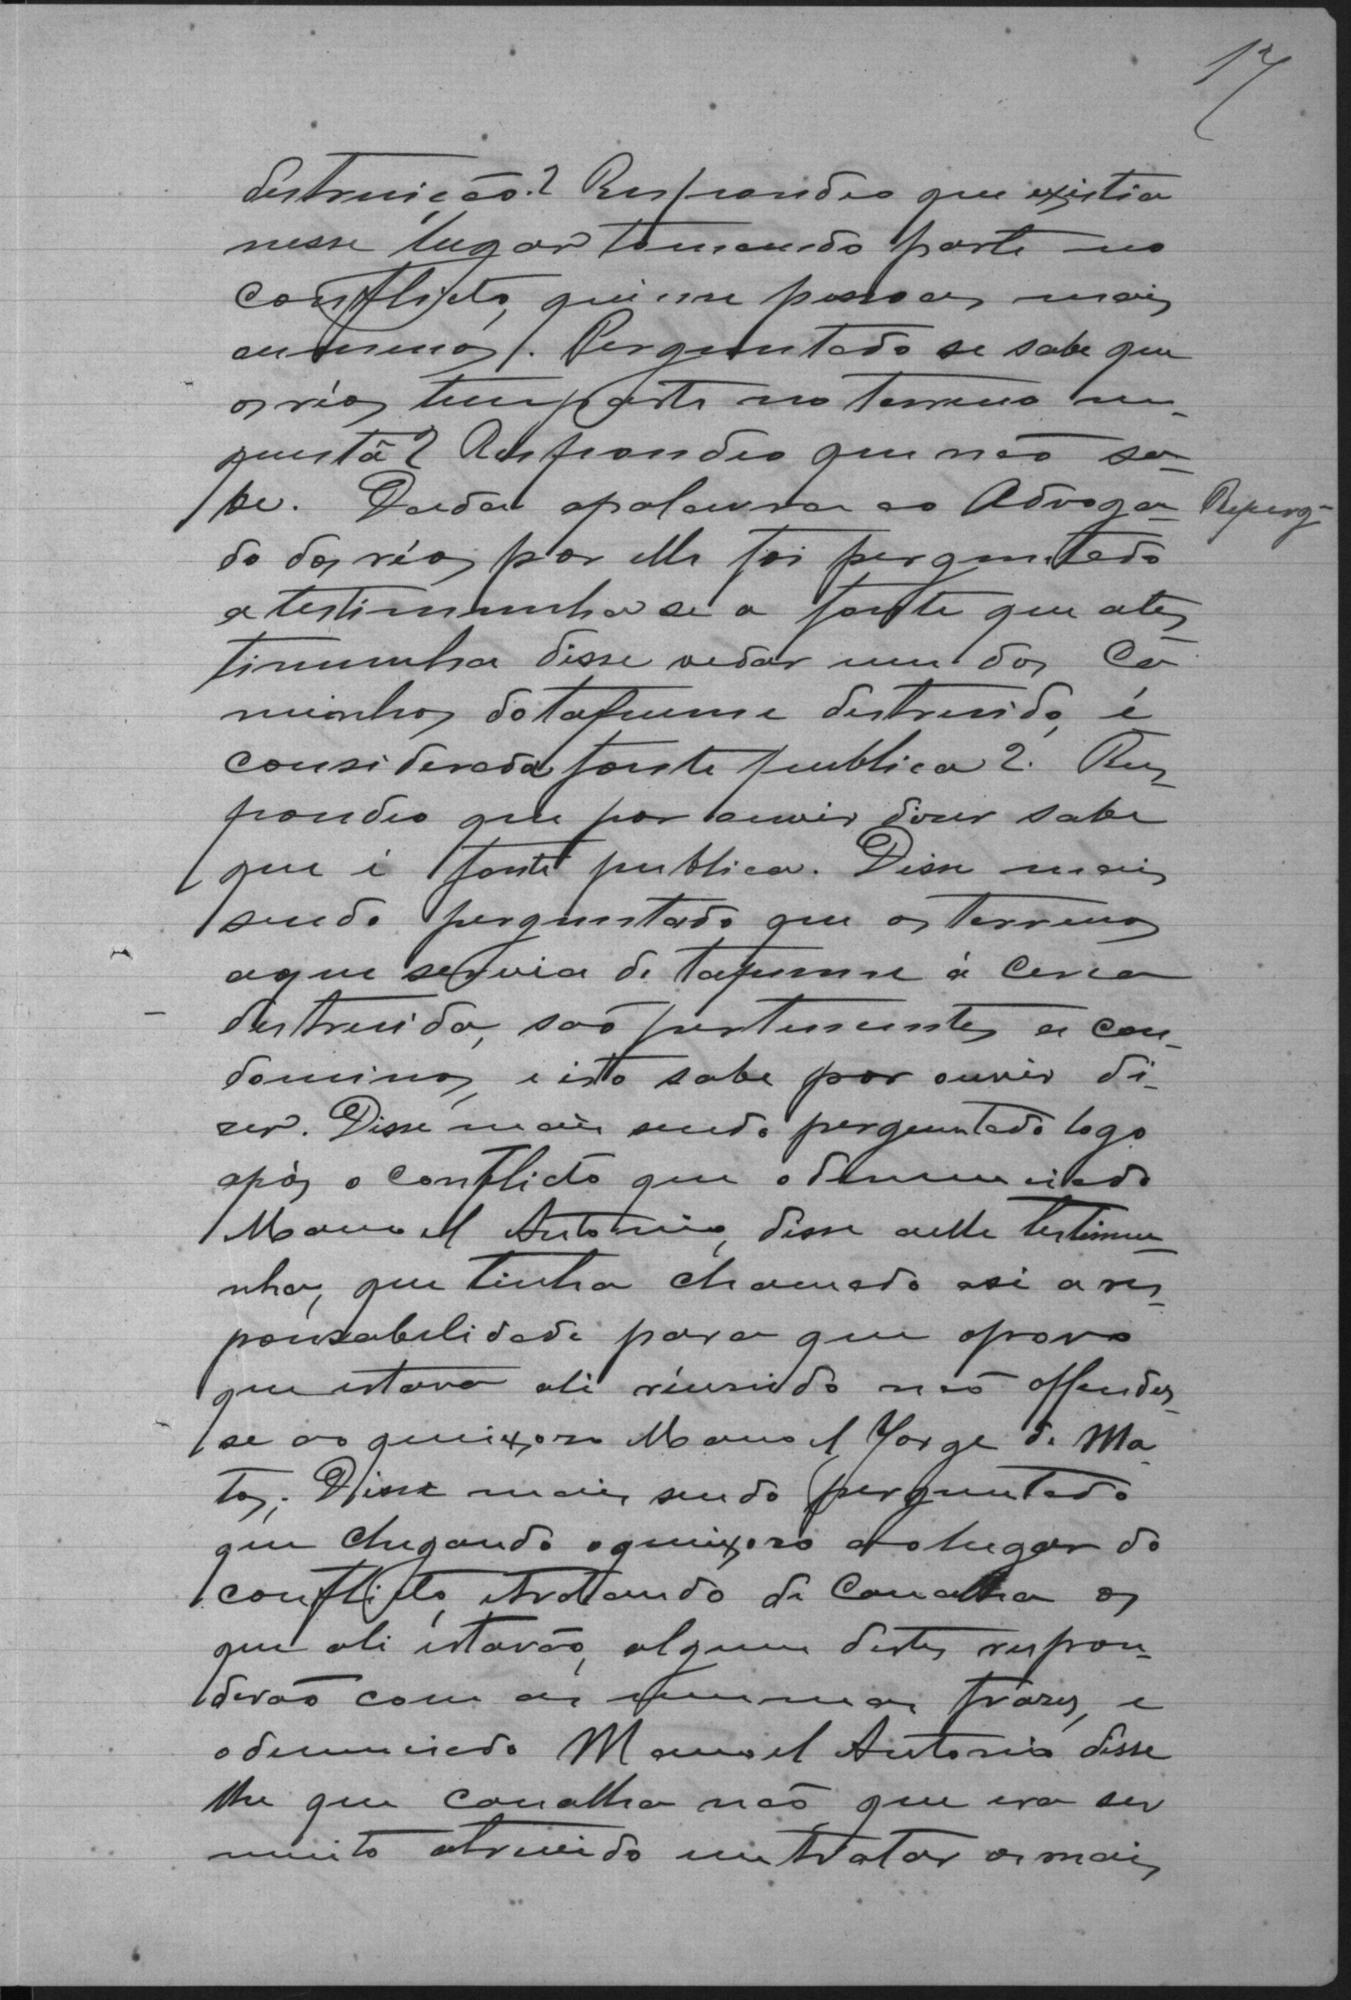 17
destruição? Respondeo que existia
nesse lugar tomando parte no
conflicto, quinse pessoas mais
ou menos. Perguntado se sabe que
os réos tem parte no terreno em
questã? Respondeo que não sa-
be. Dada apalavra ao Advoga-
Reperg-
do dos réos por elle foi perguntado
a testimunha se a fonte que ates
timunha disse vedar um dos Ca
minhos do tapume destruido, é
considerada fonte publica? Res-
pondeo que por ouvir diser sabe
que é fonte publica. Disse mais
sendo perguntado que os terrenos
aque servia de tapume á cerca
destruida, são pertencentes a con-
dominos, e isto sabe por ouvir di-
zer. Disse mais sendo perguntado logo
após o conflicto que odenunciado
Manoel Antonio, disse aelle testimu-
nha, que tinha chamado asi a res-
ponsabelidade para que opovo
que estava ali riunido não offendes-
se ao queixoso Manoel Jorge de Ma
tos. Disse mais sendo perguntado
que chegando oqueixoso ao lugar do
conflicto, etratando de Canalha os
que ali estavão, alguns destes respon-
derão com as mesmas frazes, e
odenunciado Manoel Antonio disse
lhe que canalha não que era ser
muito atrevido em tratar os mais